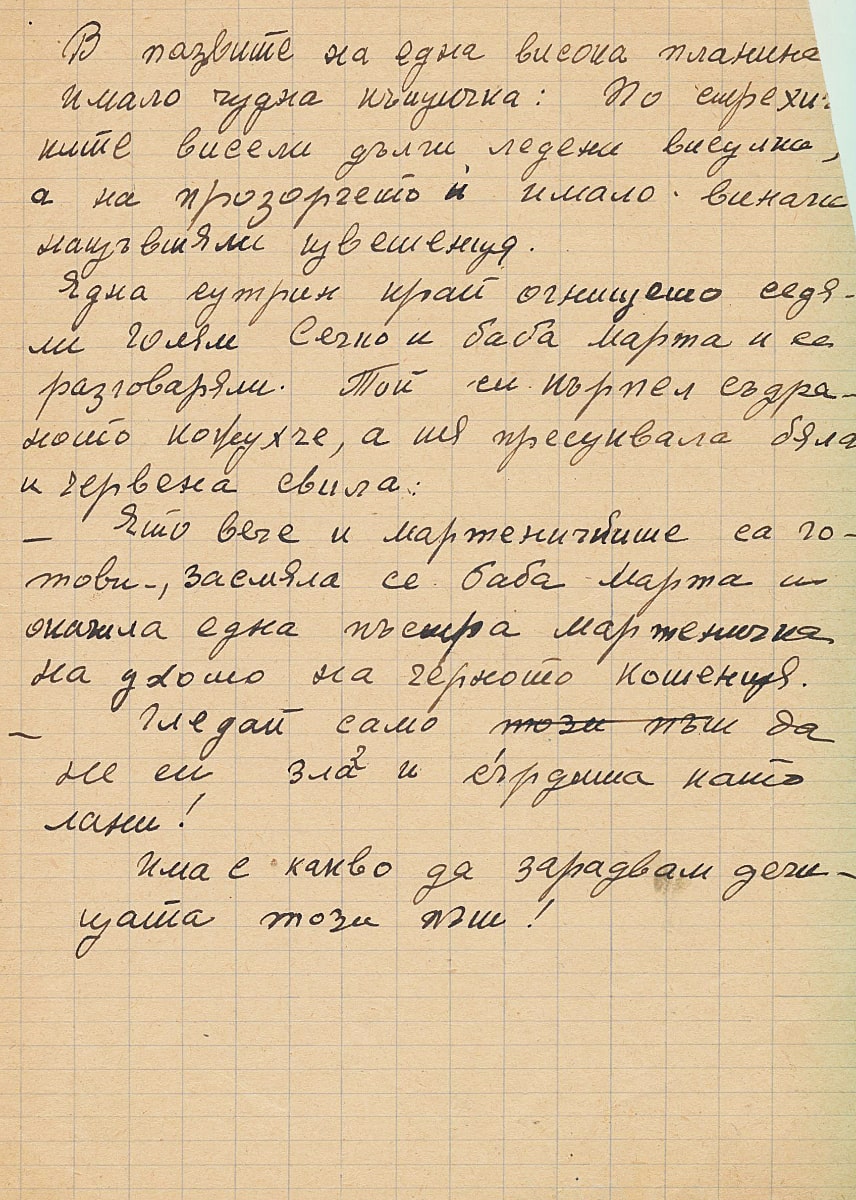 В пазвите на една висока планина
имало чудна къщичка: По стрехич-
ките висели дълги ледени висулки,
а на прозорчето ѝ имало винаги
нацъвтяли цветенца.
Една сутрин край огнището седя-
ли Голям Сечко и баба Марта и се
разговаряли. Той си кърпел съдра-
ното кожухче, а тя пресуквала бяла
и червена свила:
— Ето вече и мартеничките са го-
тови-, засмяла се баба Марта и
окачила една пъстра мартеничка
на ухото на черното котенце.
— Гледай само този път да
не си зла и сърдита като
лани!
Има с какво да зарадвам дечи-
цата този път!